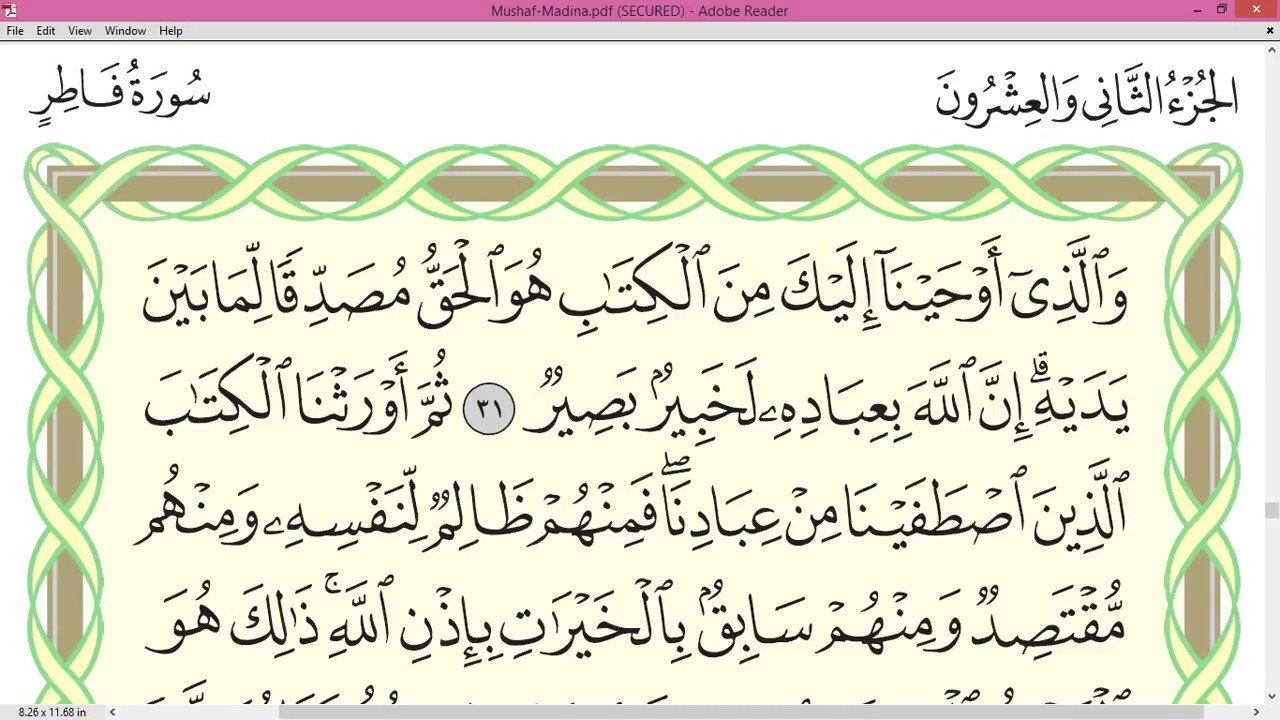 Mushaf-Madina.pdf (SECURED) - Adobe Reader
File Edit View Window Help
الجُزْءُ الثَّانِي وَالعِشْرُونَ
سُورَةُ فَاطِرٍ
وَٱلَّذِىٓ أَوۡحَيۡنَآ إِلَيۡكَ مِنَ ٱلۡكِتَٰبِ هُوَ ٱلۡحَقُّ مُصَدِّقٗا لِّمَا بَيۡنَ
يَدَيۡهِۗ إِنَّ ٱللَّهَ بِعِبَادِهِۦ لَخَبِيرُۢ بَصِيرٞ ٣١ ثُمَّ أَوۡرَثۡنَا ٱلۡكِتَٰبَ
ٱلَّذِينَ ٱصۡطَفَيۡنَا مِنۡ عِبَادِنَاۖ فَمِنۡهُمۡ ظَالِمٞ لِّنَفۡسِهِۦ وَمِنۡهُم
مُّقۡتَصِدٞ وَمِنۡهُمۡ سَابِقُۢ بِٱلۡخَيۡرَٰتِ بِإِذۡنِ ٱللَّهِۚ ذَٰلِكَ هُوَ
8.26 x 11.68 in